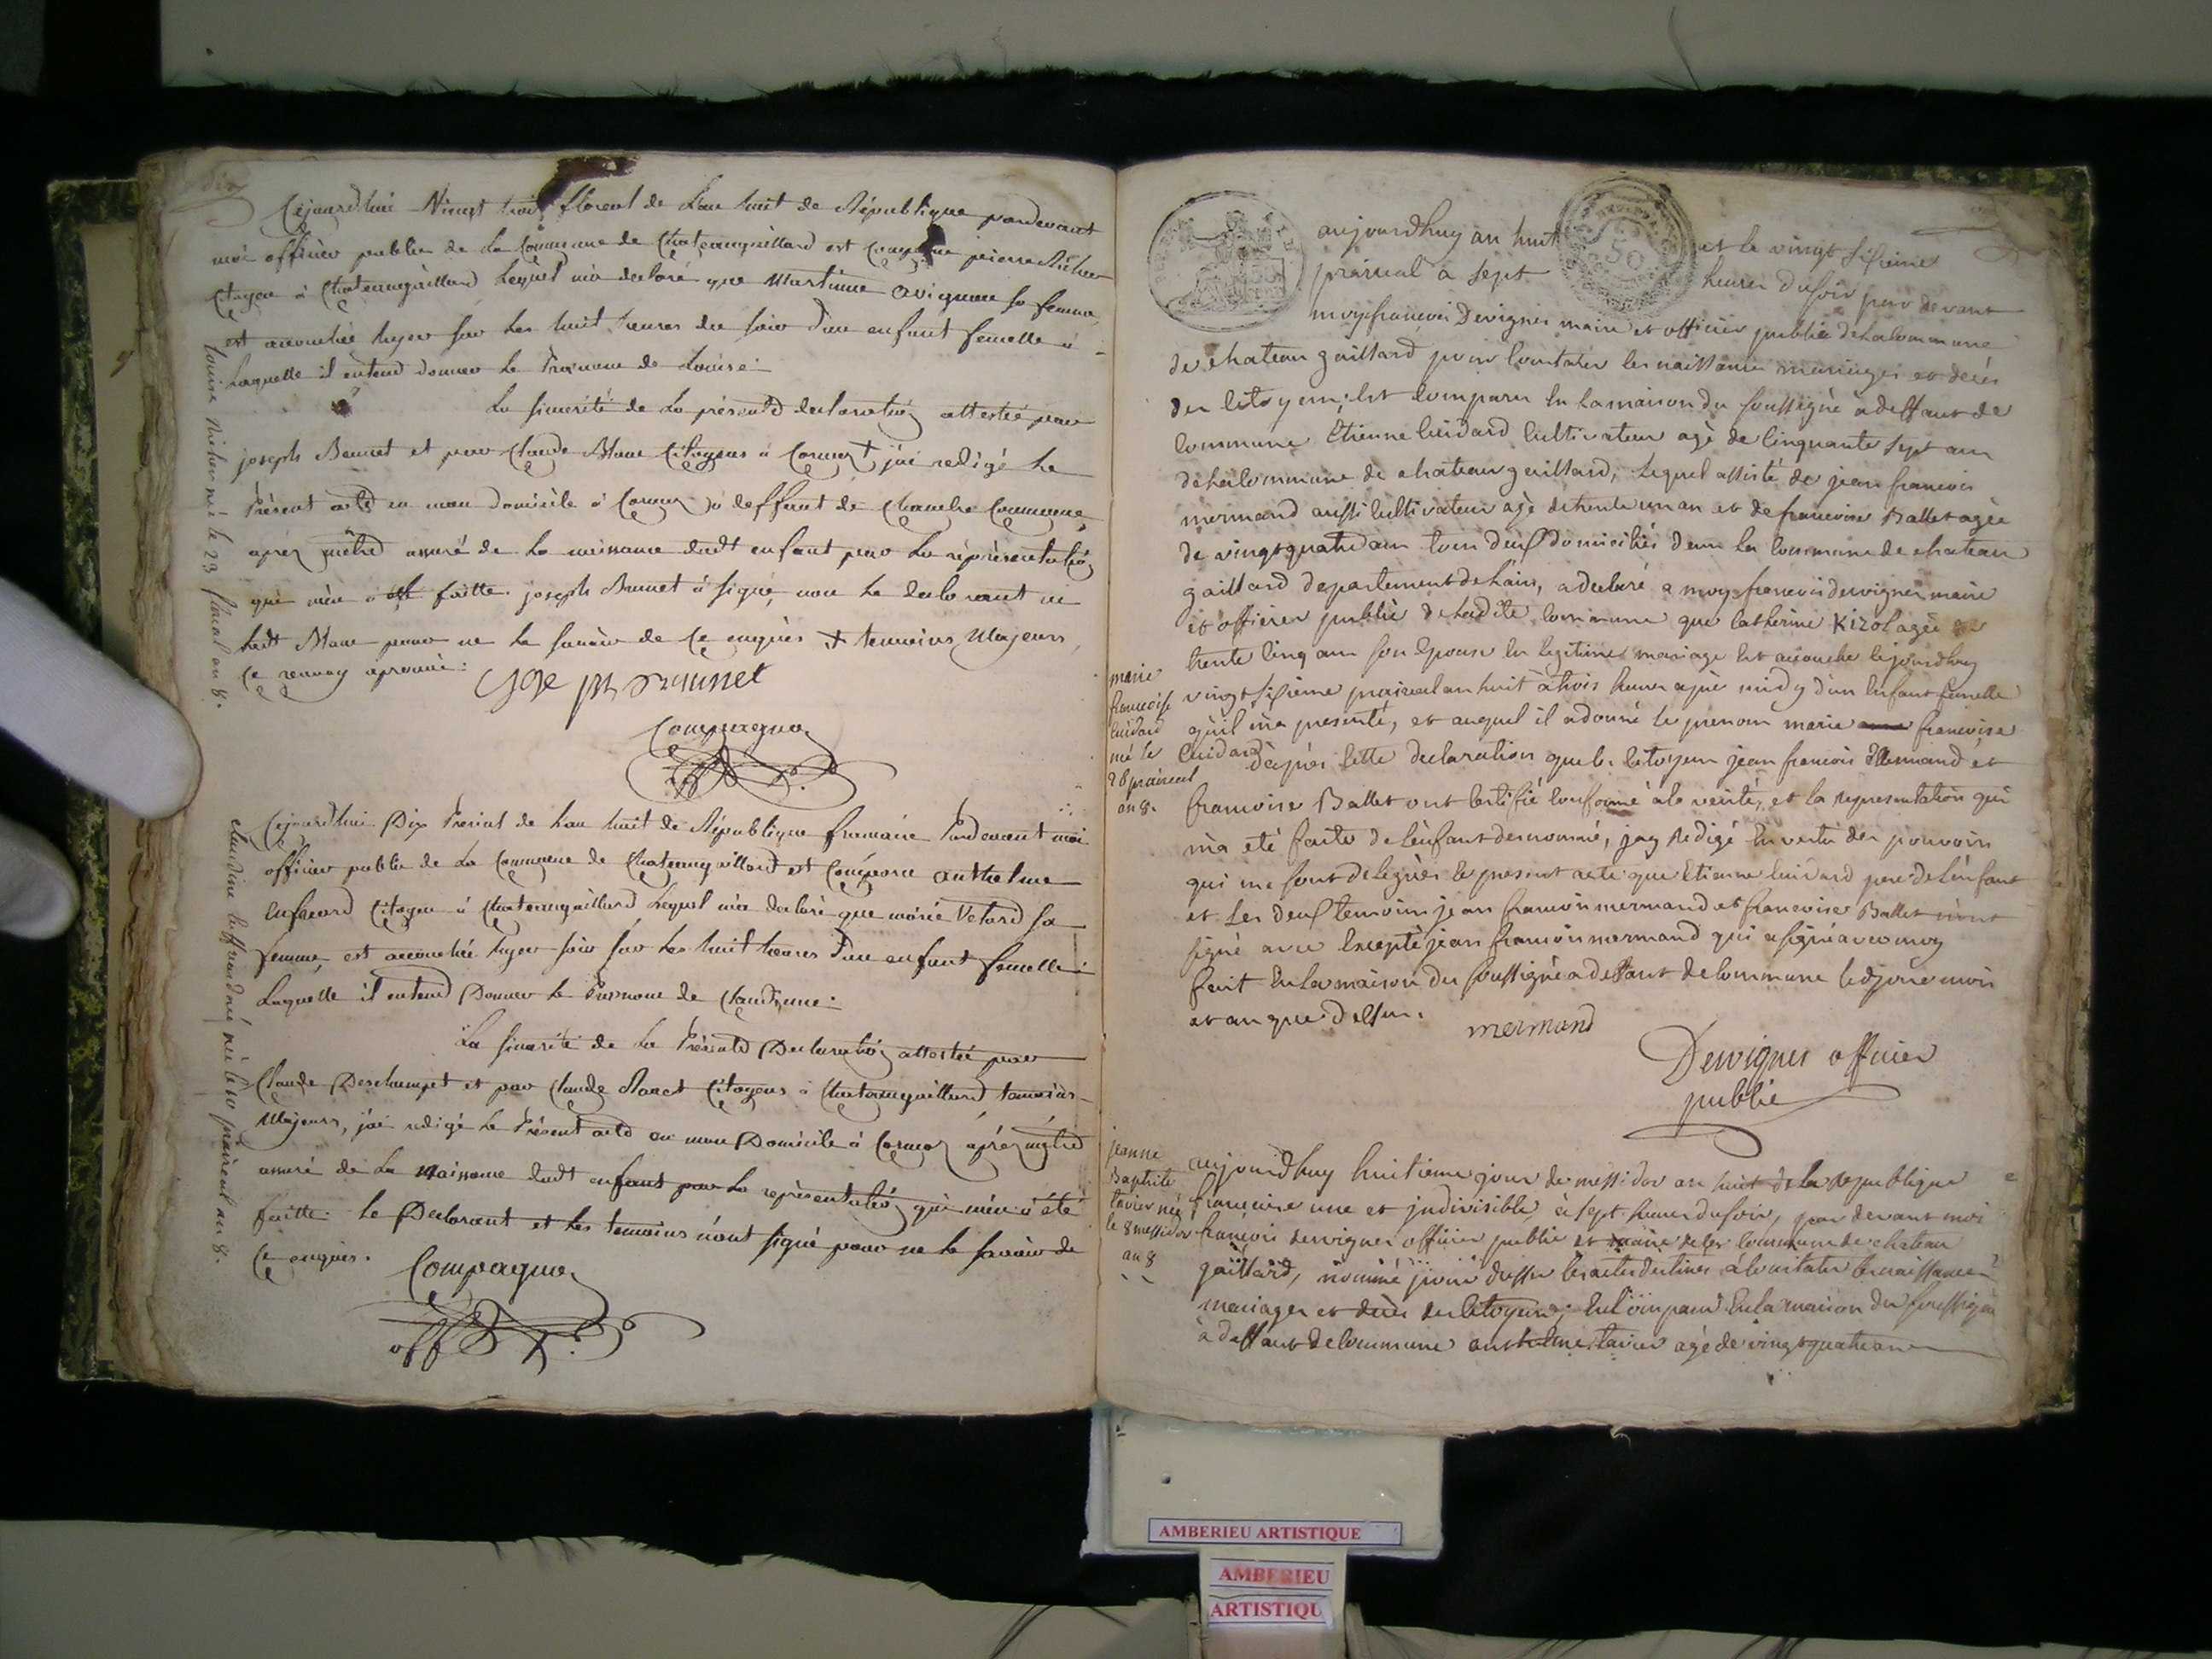 dix
Cejourd'hui Vingt trois floréal de L'an huit de République pardevant
moi officier public de La Commune de Chateaugaillard est Comparu pierre Richer
Citoyen à Chateaugaillard Lequel m'a declaré que Martinne avignon sa femme
est accouchée hyer sur Les huit heures du soir d'un enfant femelle à
Laquelle il entend donner Le Prénom de Louise.
La sincerité de La présente declaration attestée par
joseph Brunet et par Claude Blanc Citoyens à Cormoz + j'ai redigé Le
Présent acte en mon domicile à Cormoz à deffaut de Chambre Commune
après m'être assuré de La naissance dudt enfant par La représentation
qui m'en a été faitte. joseph Brunet à signé, non Le declarant ni
Ledt Blanc pour ne Le savoir de Ce enquis + temoins Majeurs
Ce renvoy aprouvé.
Joseph Brunet
Compagnon
off. p.
Louise Richer née le 23 floreal an 8.
Cejourd'hui Dix Prerial de L'an huit de République francaise Pardevant moi
officier public de La Commune de Chateaugaillard est Comparu anthelme
Citoyen à Chateaugaillard Lequel m'a declaré que marie Vetard sa
femme, est accouchée hyer soir sur Les huit heures d'un enfant femelle à
Laquelle il entend Donner Le Prénom de Claudinne.
La sincerité de La Présente Declaration attestée par
Claude Deschampet et par Claude Citoyens à Chateaugaillard temoins
Majeurs, j'ai redigé Le Présent acte en mon Domicile à Cormoz après m'être
assuré de La Naissance dudt enfant par La représentation qui m'en a été
faitte. Le Declarant et Les temoins n'ont signé pour ne Le savoir de
Ce enquis.
Compagnon
off. p.
Claudine née le 10 prairial an 8.
aujourdhuy an huit et le vingt sixieme
prairial a sept heures du soir par devant
moy francois Dervignes maire et officier public de la commune
de chateau gaillard pour constater les naissances mariages et decès
des citoyens; est comparu en la maison du soussigné a deffaut de
commune Etienne Cuidard cultivateur agé de cinquante sept ans
de la commune de chateau gaillard, lequel assisté de jean francois
mermand aussi cultivateur agé de trente un an et de francoise Ballet agée
de vingt quatre ans tous deux domiciliés dans la commune de chateau
gaillard departement de Lain, a declaré a moy francois dervignes maire
et officier public de ladite commune que catherine Kizol agée de
trente cinq ans son Epouse en legitime mariage est accouche cejourdhuy
vingt sixieme prairial an huit à trois heures aprés midy d'un enfant femelle
qu'il m'a presenté, et auquel il a donné le prenom marie francoise
Cuidard d'aprés cette declaration que les citoyens jean francois mermand et
francoise Ballet ont certifié conforme à la verité, et la representation qui
m'a eté faite de l'enfant denommé, jay redigé en vertu des pouvoirs
qui me sont delegués le present acte que Etienne Cuidard pere de l'enfant
et les deux temoins jean francois mermand et francoise Ballet n'ont
signé avec Excepté jean francois mermand qui a signé avec moy
fait En la maison du soussigné a deffaut de commune led. jour mois
et an que dessus.
mermand
Dervignes officier
public
marie
francoise
Cuidard
née le
26 prairial
an 8.
jeanne
Baptiste
tavier née
le 8 messidor
an 8
aujourdhuy huitieme jour de messidor an huit de la republique
francaise une et jndivisible, à sept heures du soir, par devant moi
francois dervignes officier public et maire de la commune de chateau
gaillard, nommé pour dresser les actes destinés à constater les naissances
mariages et decès des citoyens; est comparu En la maison du soussigné
à deffaut de commune anthelme tavier agé de vingt quatre ans
AMBERIEU ARTISTIQUE
AMBERIEU
ARTISTIQU